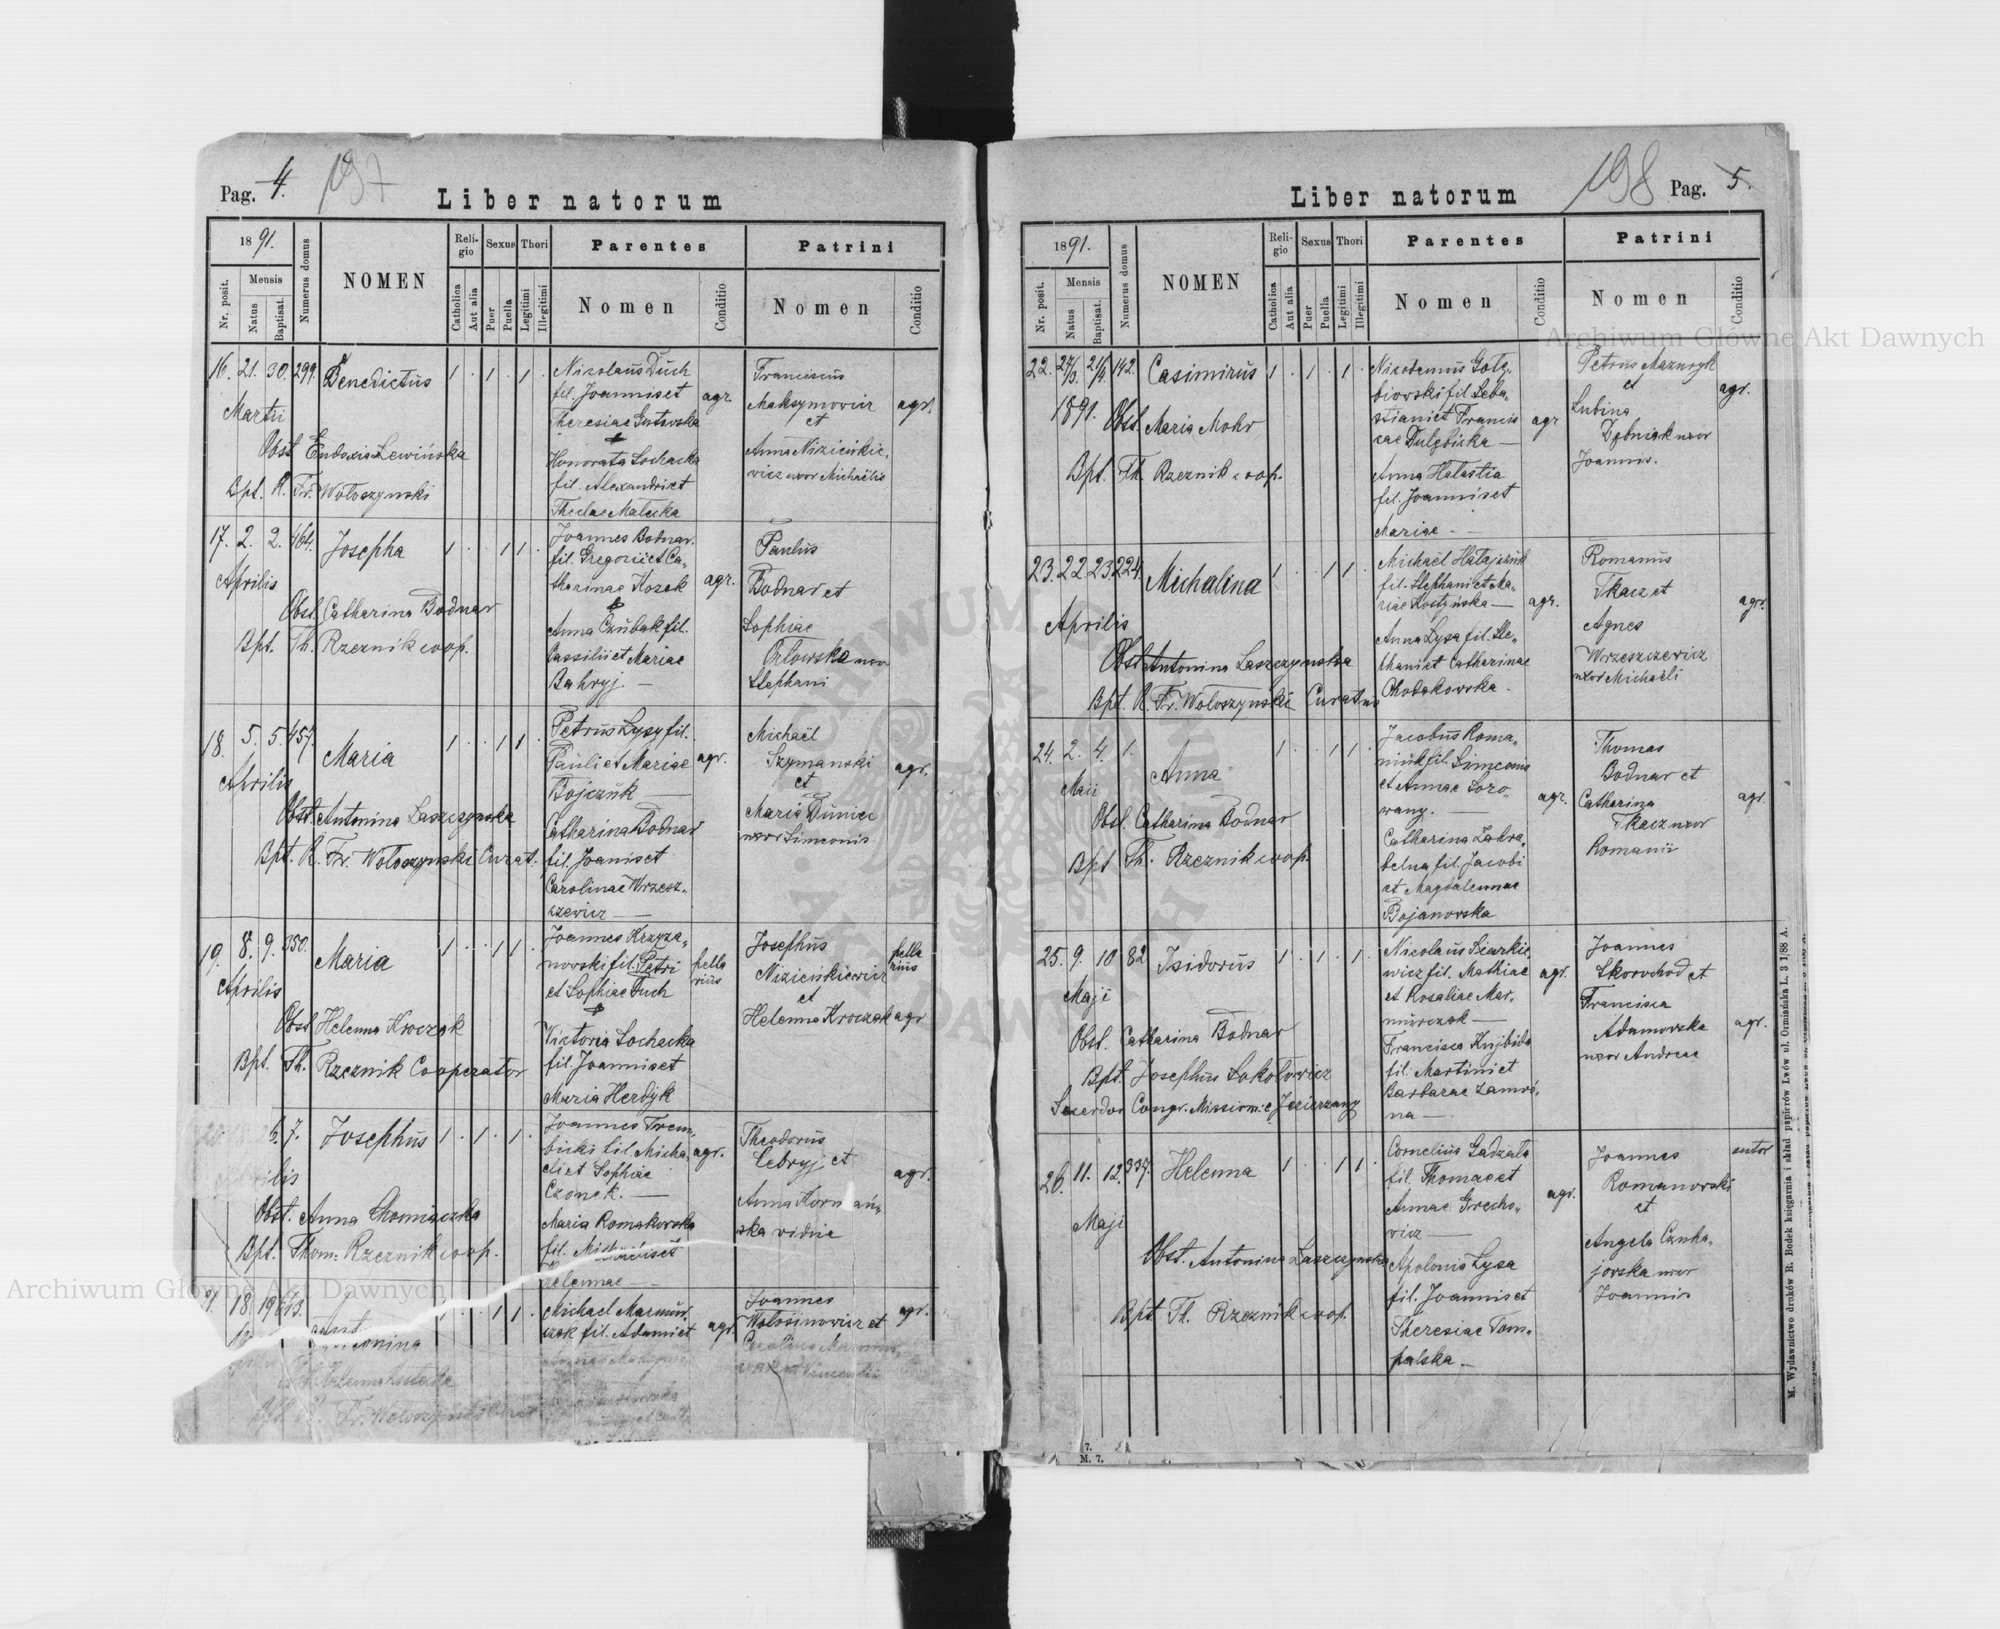 Pag. 4.
197
Liber natorum
1891.
Nr. posit.
Mensis
Natus
Baptisat.
Numerus domus
NOMEN
Religio
Catholica
Aut alia
Sexus
Puer
Puella
Thori
Legitimi
Illegitimi
Parentes
Nomen
Conditio
Patrini
Nomen
Conditio
16. 21. 30. 299. Benedictus 1 . 1 . 1 .
Martii
Obst. Eudoxia Lewińska
Bpt. R. Fr. Wołoszynski
Nicolaus Duch
fil. Joannis et
Theresiae Gutowska
&
Honorata Lochacka
fil. Alexandri et
Theclae Malecka
agr.
Franciscus
Maksymovicz
et
Anna Nizieńkie„
wicz uxor Michaëlis
agr.
17. 2. 2. 464. Josepha 1 . . 1 1 .
Aprilis
Obst. Catharina Bodnar
Bpt. Th. Rzeznik coop.
Joannes Bodnar
fil. Gregorii et Ca„
tharinae Kozak
&
Anna Czubak fil.
Bassilii et Mariae
Bahryj. —
agr.
Paulus
Bodnar et
Sophiae
Orłowska uxor
Stephani
18. 5. 5. 457. Maria 1 . . 1 1 .
Aprilis
Obst. Antonina Laszczynska
Bpt. R. Fr. Wołoszynski Curat.
Petrus Lysy fil.
Pauli et Mariae
Bojczuk —
Catharina Bodnar
fil. Joanis et
Carolinae Wrzesz„
czewicz —
agr.
Michaël
Szymanski
et
Maria Dunicz
uxor Simeonis
agr.
19. 8. 9. 350. Maria 1 . . 1 1 .
Aprilis
Obst. Helenna Kroczak
Bpt. Th. Rzeznik Cooperator
Joannes Krzyza„
nowski fil. Petri
et Sophiae Duch
&
Victoria Lochacka
fil. Joannis et
Maria Herdyk
pella
rius
Josephus
Nizieńkiewicz
et
Helenna Kroczak
pella
rius
agr
6. 7. Josephus 1 . 1 . 1 .
ilis
Obst. Anna Chomiaczka
Bpt. Thom. Rzeznik coop.
Joannes Trem„
bicki fil. Micha„
elis et Sophiae
Czonek. —
Maria Romakowska
fil. Michaelis et
Helennae —
agr.
Theodorus
Cebryj et
Anna Korman„
ska vidue
agr.
18. 19. 1 . . 1 1 .
Helenna
Bpt. R. Fr. Wołoszynski
Michael Marmur„
czak fil. Adami et
agr.
Joannes
Wołosinovicz et
Carolina
agr.
198
Pag. 5.
Liber natorum
1891.
Nr. posit.
Mensis
Natus
Baptisat.
Numerus domus
NOMEN
Religio
Catholica
Aut alia
Sexus
Puer
Puella
Thori
Legitimi
Illegitimi
Parentes
Nomen
Conditio
Patrini
Nomen
Conditio
22. 27/3. 21/4. 142. Casimirus 1 . 1 . 1 .
1891.
Obst. Maria Mohr
Bpt. Th. Rzeznik coop.
Nicodemus Gołę„
biowski fil. Seba„
stiani et Francis
cae Dulębicka —
Anna Hałastia
fil. Joannis et
Mariae. —
agr
Petrus Mazuryk
et
Lubina
Dębniak uxor
Joannis.
agr.
23. 22. 23. 224. Michalina 1 . . 1 1 .
Aprilis
Obst. Antonina Laszczynska
Bpt. R. Fr. Wołoszynski Curatus
Michaël Hałajczuk
fil. Stephani et Ma„
riae Kostyńska —
Anna Lysa fil. Ste„
phani et Catharinae
Chodakowska.
agr.
Romanus
Tkacz et
Agnes
Wrzeszczewicz
uxor Michaeli
agr.
24. 2. 4. 1. Anna 1 . . 1 1 .
Maii
Obst. Catharina Bodnar
Bpt Th. Rzeznik coop.
Jacobus Roma„
niuk fil. Simeonis
et Annae Soro„
wany. —
Catharina Zahra„
belna fil. Jacobi
et Magdalennae
Bojanowska
agr.
Thomas
Bodnar et
Catharina
Tkacz uxor
Romanii
agr.
25. 9. 10 82 Isidorus 1 . 1 . 1 .
Maji
Obst. Catharina Bodnar
Bpt. Josephus Sokołowicz
Sacerdos Congr. Missionis Jezierzany
Nicolaus Sienkie„
wicz fil. Mathiae
et Rosaliae Mar„
murczak —
Francisca Knihida
fil. Martini et
Barbarae Zamoś„
na —
agr.
Joannes
Skorochod et
Francisca
Adamovska
uxor Andreae
agr.
26. 11. 12. 337. Helenna 1 . . 1 1 .
Maji
Obst. Antonina Laszczynska
Bpt. Th. Rzeznik coop.
Cornelius Gadzała
fil. Thomae et
Annae Grecho„
wicz —
Apolonia Lysa
fil. Joannis et
Theresiae Tom„
palska —
agr.
Joannes
Romanovski
et
Angela Czuha„
jovska uxor
Joannis
sutor
7.
M. 7.
M. Wydawnictwo druków R. Bodek księgarnia i skład papierów Lwów ul. Ormiańska L. 3 1/88 A.
Archiwum Główne Akt Dawnych
Archiwum Główne Akt Dawnych